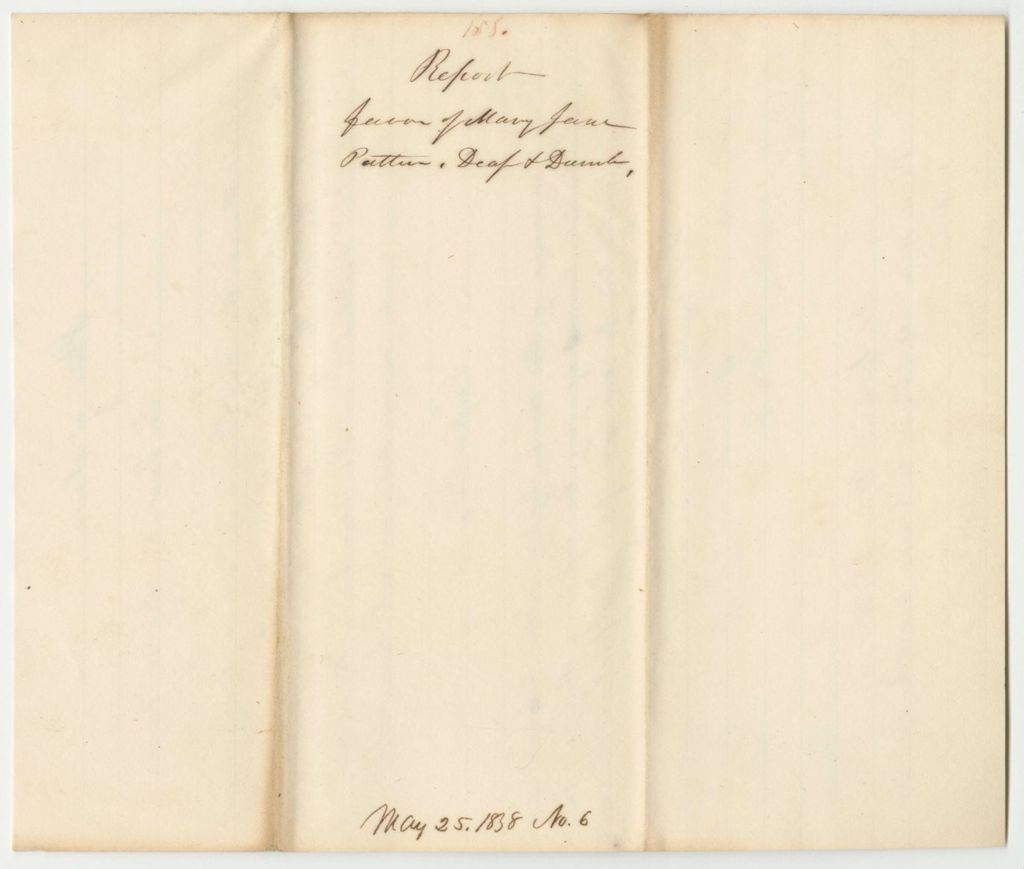 185.
Report
favor of Mary Jane
Patten. Deaf & Dumb,
May 25. 1838 No. 6